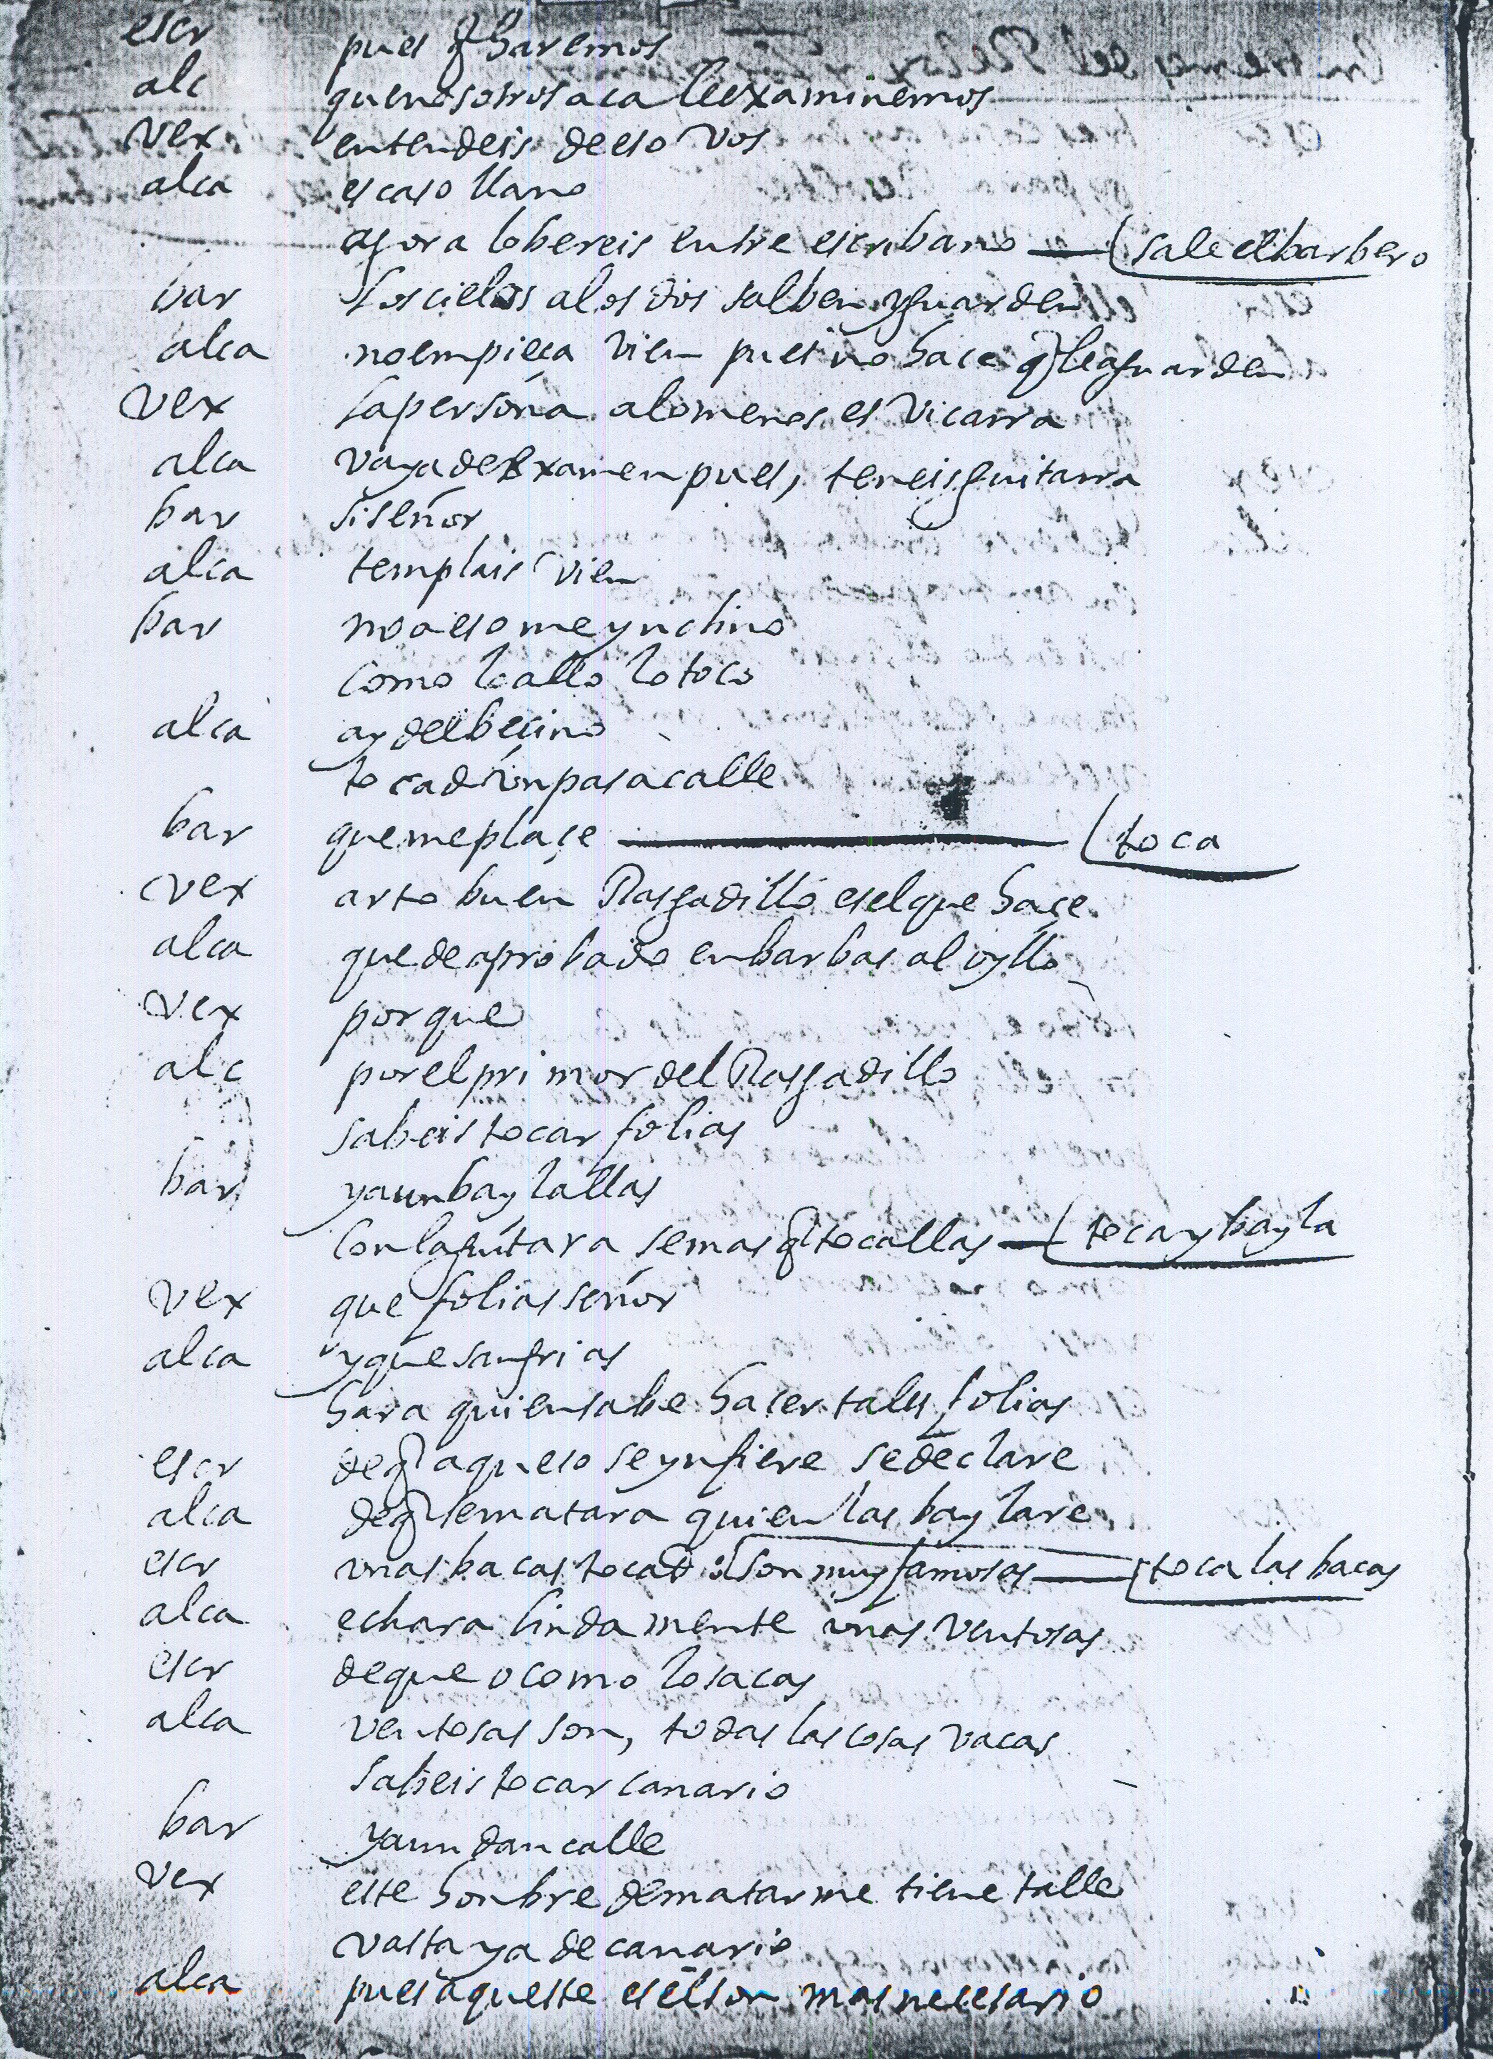 escr pues q haremos
alc que nosotros aca le examinemos
vex entendeis de eso vos
alca es caso llano
agora lo bereis entre escribano — sale el barbero
bar los cielos a los dos salben y guarden
alca no empieça vien pues no hace q le aguarden
vex la persona a lo menos es vicarra
alca vaya de examen pues, teneis guitarra
bar si señor
alca templais vien
bar no a eso me ynclino
como lo allo lo toco
alca ay del becino
tocad un pasacalle
bar que me plaçe — toca
vex arto buen Rasgadillo es el que haçe
alca quede aprobado en barbas al oyllo
vex porque
alc por el primor del Rasgadillo
sabeis tocar folias
bar y aun baylallas
con la guitara se mas q tocallas — toca y bayla
vex que folias señor
alca y que sangrias
hara quien sabe hacer tales folias
escr de q aqueso se ynfiere se declare
alca de q se matara quien las baylare
escr unas bacas tocad : son muy famosas — toca las bacas
alca echara lindamente unas ventosas
escr de que o como lo sacas
alca ventosas son, todas las cosas vacas
sabeis tocar canario
bar y aun dancalle
vex este honbre de matarme tiene talle
vasta ya de canario
alca pues aqueste es el son mas necesario